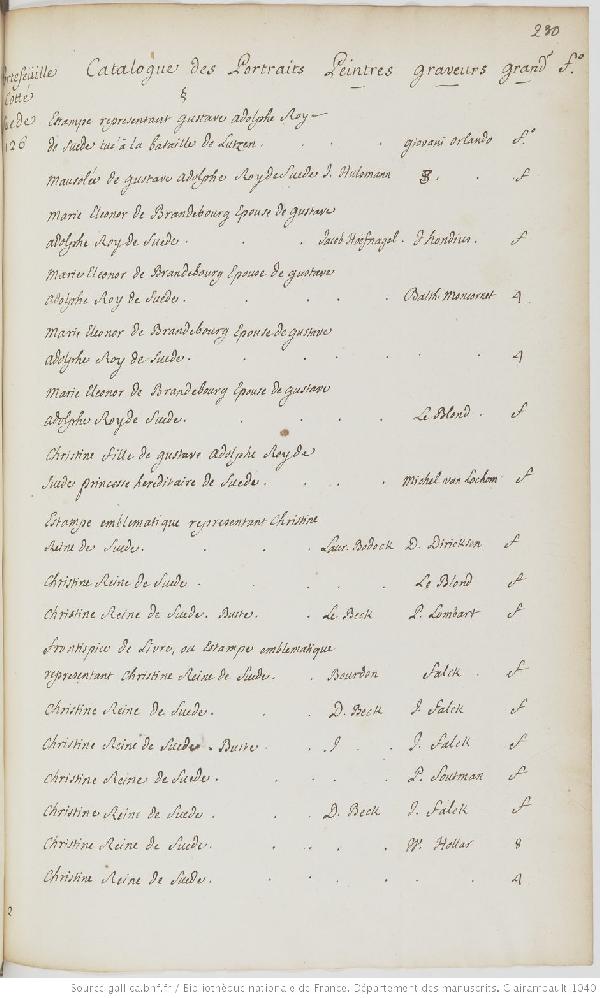 230
Portefeuille Catalogue des Portraits Peintres graveurs grand.r f.o
Cotté
Suede
126
§
Estampe representant gustave adolphe Roy
de Suede tué à la bataille de Lutzen. giovani orlando f.o
Mausolée de gustave adolphe Roy de Suede J. Hulsmann f
Marie Eleonor de Brandebourg Epouse de gustave
adolphe Roy de Suede. Jacob Hoefnagel. J hondius. f
Marie Eleonor de Brandebourg Epouse de gustave
adolphe Roy de Suede. Balth. Moncornet 4.
Marie Eleonor de Brandebourg Epouse de gustave
adolphe Roy de Suede. 4
Marie Eleonor de Brandebourg Epouse de gustave
adolphe Roy de Suede. Le Blond. f
Christine fille de gustave Adolphe Roy de
Suede princesse hereditaire de Suede. Michel van Lochom f
Estampe emblematique representant Christine
Reine de Suede. Laur. Bodock D. Dirickson f
Christine Reine de Suede. Le Blond f
Christine Reine de Suede. Buste. Le Beck P. Lombart f
frontispice de Livre, ou Estampe emblematique
representant Christine Reine de Suede. Bourdon Falck. f
Christine Reine de Suede. D. Beck J. Falck f
Christine Reine de Suede. Buste. J. J. Falck f
Christine Reine de Suede. P. Soutman f
Christine Reine de Suede. D. Beck J. Falck f
Christine Reine de Suede. W. Hollar 8
Christine Reine de Suede. 4
2
Source gallica.bnf.fr / Bibliothèque nationale de France. Département des manuscrits. Clairambault 1040